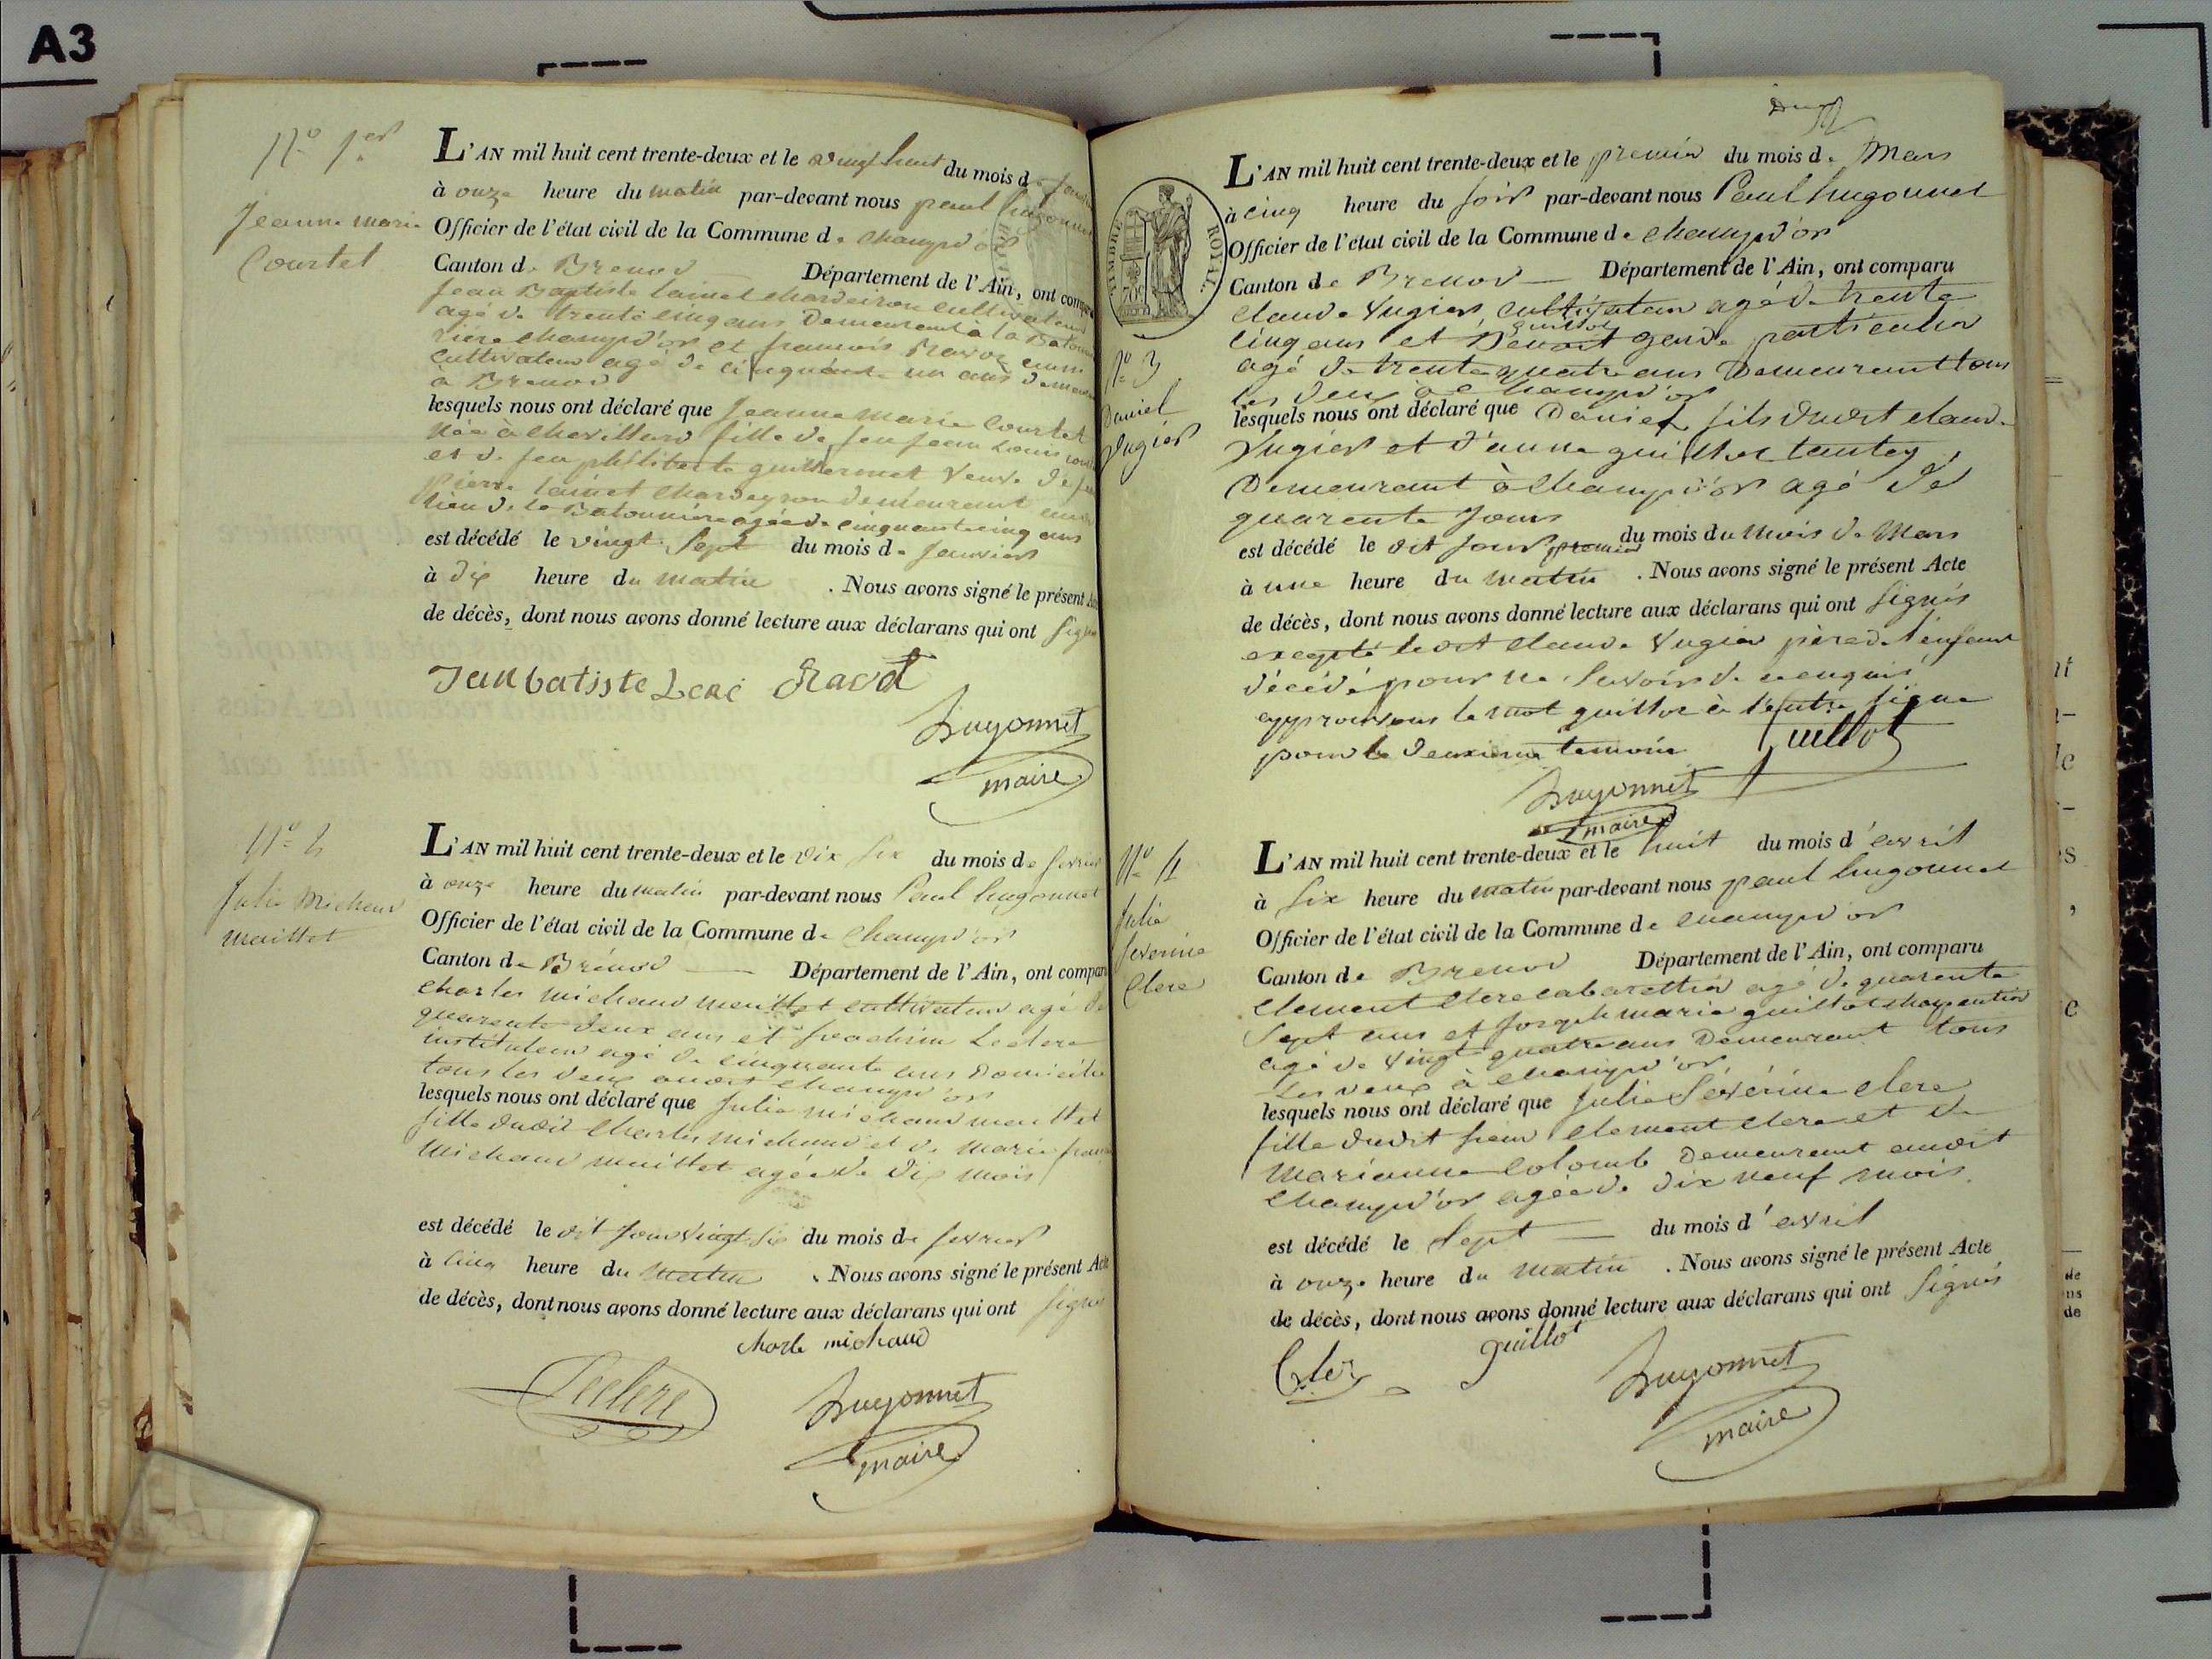 A3
N° 1er
Jeanne marie
Courtet
L'AN mil huit cent trente-deux et le vingt huit du mois de
à onze heure du matin par-devant nous paul hugonnet
Officier de l'état civil de la Commune de champd'or
Canton de Brenod Département de l'Ain, ont
Jean Baptiste cultivateur
agé de trente cinq ans Demeurant à la
champd'or et francois
cultivateur agé de cinquante un ans
à Brenod
lesquels nous ont déclaré que Jeanne marie Courtet
née à chevillard fille de feu jean Louis
et de feu philiberte guillermet veuve de
pierre demeurant
lieu de la Batonnière agée de cinquante cinq ans
est décédé le vingt Sept du mois de janvier
à dix heure du matin . Nous avons signé le présent
de décès, dont nous avons donné lecture aux déclarans qui ont
Jean batiste
hugonnet
maire
N° 2
Julie michaud
maillet
L'AN mil huit cent trente-deux et le du mois de fevrier
à onze heure du matin par-devant nous Paul hugonnet
Officier de l'état civil de la Commune de champd'or
Canton de Brénod Département de l'Ain, ont
charles michaud maillet cultivateur agé de
quarante deux ans et Leclerc
instituteur agé de cinquante ans
tous les deux audit champd'or
lesquels nous ont déclaré que Julie michaud maillet
fille dudit Charles michaud et de marie
michaud maillet agée de dix mois
est décédé le dit jour vingt six du mois de fevrier
à cinq heure du matin . Nous avons signé le présent Acte
de décès, dont nous avons donné lecture aux déclarans qui ont signé
charle michaud
Leclerc
hugonnet
maire
TIMBRE ROYAL
N° 3
Daniel
Vugier
L'AN mil huit cent trente-deux et le premier du mois de Mars
à cinq heure du soir par-devant nous Paul hugonnet
Officier de l'état civil de la Commune de champd'or
Canton de Brenod Département de l'Ain, ont comparu
claude Vugier cultivateur agé de trente
guillot
cinq ans et Benoit garde particulier
agé de trente quatre ans Demeurant tous
les deux à champd'or
lesquels nous ont déclaré que Daniel fils dudit claude
Vugier et d'anne guillot
Demeurant à champd'or agé de
quarente jours
est décédé le dit jour premier du mois du mois de Mars
à une heure du matin . Nous avons signé le présent Acte
de décès, dont nous avons donné lecture aux déclarans qui ont signés
excepté ledit claude Vugier père de l'enfant
décédé pour ne savoir de ce enquis
approuvons le mot guillot à l'entre ligne
pour le deuxieme temoin Guillot
hugonnet
maire
N° 4
Julie
Severine
Clerc
L'AN mil huit cent trente-deux et le huit du mois d'avril
à six heure du matin par-devant nous paul hugonnet
Officier de l'état civil de la Commune de champd'or
Canton de Brenod Département de l'Ain, ont comparu
clement clerc cabarettier agé de quarente
Sept ans et Joseph marie guillot charpentier
agé de vingt quatre ans Demeurant tous
les deux à champd'or
lesquels nous ont déclaré que Julie Sévérine clerc
fille dudit sieur clement clerc et de
marianne Colomb Demeurant audit
champd'or agée de dix neuf mois
est décédé le Sept du mois d'avril
à onze heure du matin . Nous avons signé le présent Acte
de décès, dont nous avons donné lecture aux déclarans qui ont signés
Clerc guillot
hugonnet
maire